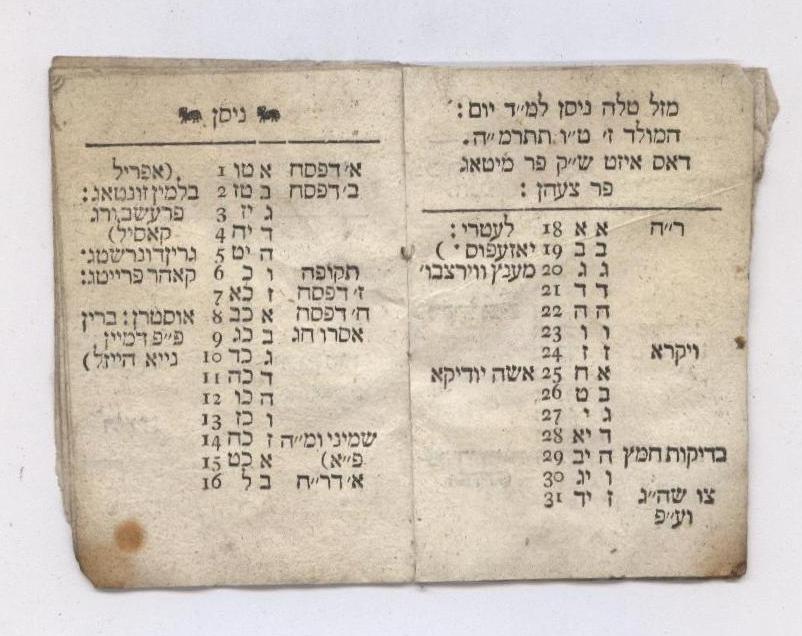 מזל טלה ניסן למ״ד יום:
המולד ז׳ ט״ו תתרמ״ה.
דאס איזט ש״ק פר מיטאג
פר צעהן:
ר״ה א א 18 לעטרי:
ב ב 19 יאזעפוס·)
ג ג 20 מענץ ווירצבו׳
ד ד 21
ה ה 22
ו ו 23
ויקרא ז ז 24
א ח 25 אשה יודיקא
ב ט 26
ג י 27
ד יא 28
בדיקות חמץ ה יב 29
ו יג 30
צו שה״ג ז יד 31
וע״פ
ניסן
א׳ דפסח א טו 1 (אפריל
ב׳ דפסח ב טז 2 בלמין זונטאג:
ג יז 3 פרעשבורג
ד יח 4 קאסיל)
ה יט 5 גרין דונרשטג:
תקופה ו כ 6 קאהר פרייטג:
ז׳ דפסח ז כא 7
ח׳ דפסח א כב 8 אוסטרן: ברין
אסרו חג ב כג 9 פ״פ דמיין
ג כד 10 נייא הייזל)
ד כה 11
ה כו 12
ו כז 13
שמיני ומ״ה ז כח 14
פ״א) א כט 15
א׳ דר״ח ב ל 16